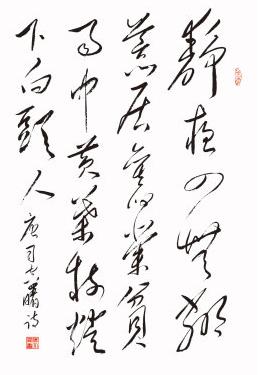 靜夜四無鄰
荒居舊業貧
雨中黄葉樹燈
下白頭人唐司空曙詩